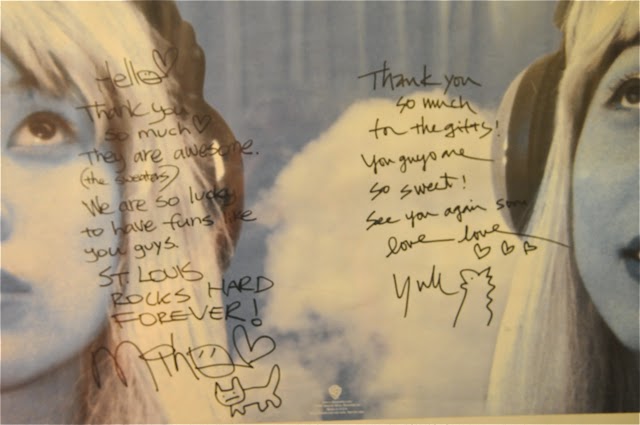 Hello
Thank you
so much
They are awesome.
(the sweaters)
We are so lucky
to have funs like
you guys.
ST. LOUIS
ROCKS HARD
FOREVER!
Miho
Thank you
so much
for the gifts!
You guys are
so sweet!
See you again soon
love love
Yuk